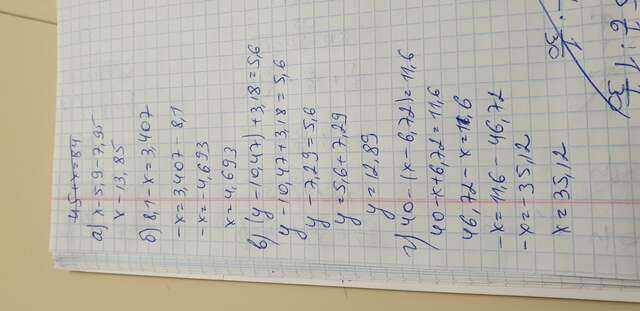 45+x=84
а) x-5,9=7,95
x-13,85
б) 8,1-x=3,407
-x=3,407-8,1
-x=4,693
x=4,693
в) (y-10,47)+3,18=5,6
y-10,47+3,18=5,6
y-7,29=5,6
y=5,6+7,29
y=12,89
г) 40-(x-6,72)=11,6
40-x+6,72=11,6
46,72-x=11,6
-x=11,6-46,72
-x=-35,12
x=35,12